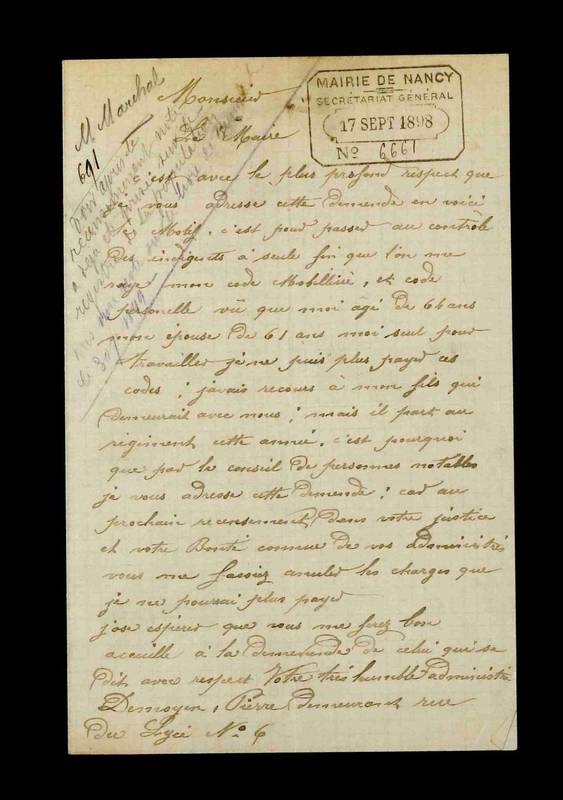 M Marchal
691
MAIRIE DE NANCY
SECRÉTARIAT GÉNÉRAL
17 SEPT 1898
No 6661
Monsieur
Le Maire
c'est avec le plus profond respect que
je vous adresse cette demende en voici
le Motif, c'est pour passer au contrôle
des indigents à seule fin que l'on me
raye mon code Mobillière, et code
personelle vû que moi âgé de 64 ans
mon épouse de 61 ans moi seul pour
travailler je ne puis plus payer ces
codes ; javais recours à mon fils qui
demeurait avec nous ; mais il part au
régiment cette année, c'est pourquoi
que par le conseil de personnes notables
je vous adresse cette demende ; car au
prochain recensement, dans votre justice
et votre Bonté connue de vos Administrés
vous me fassiez annuler les charges que
je ne pourrai plus payer
jose espérer que vous me ferez bon
accuille à la demende de celui qui se
dit avec respect Votre très humble administré
Demoyen, Pierre demeurant rue
du Lycé No 6